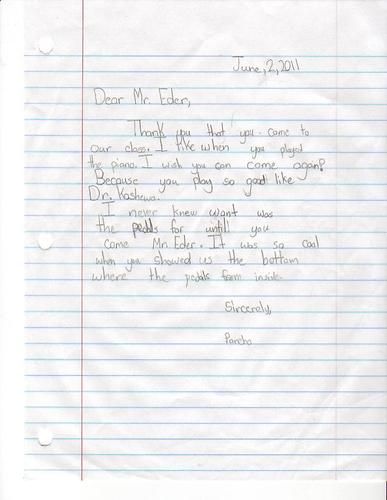 June, 2, 2011
Dear Mr. Eder,
Thank you that you come to
our class. I like when you played
the piano. I wish you can come again?
Because you play so good like
Dr. Kashewa.
I never knew want was
the pedals for untill you
came Mr. Eder. It was so cool
when you showed us the bottom
where the pedals from inside.
Sincerely,